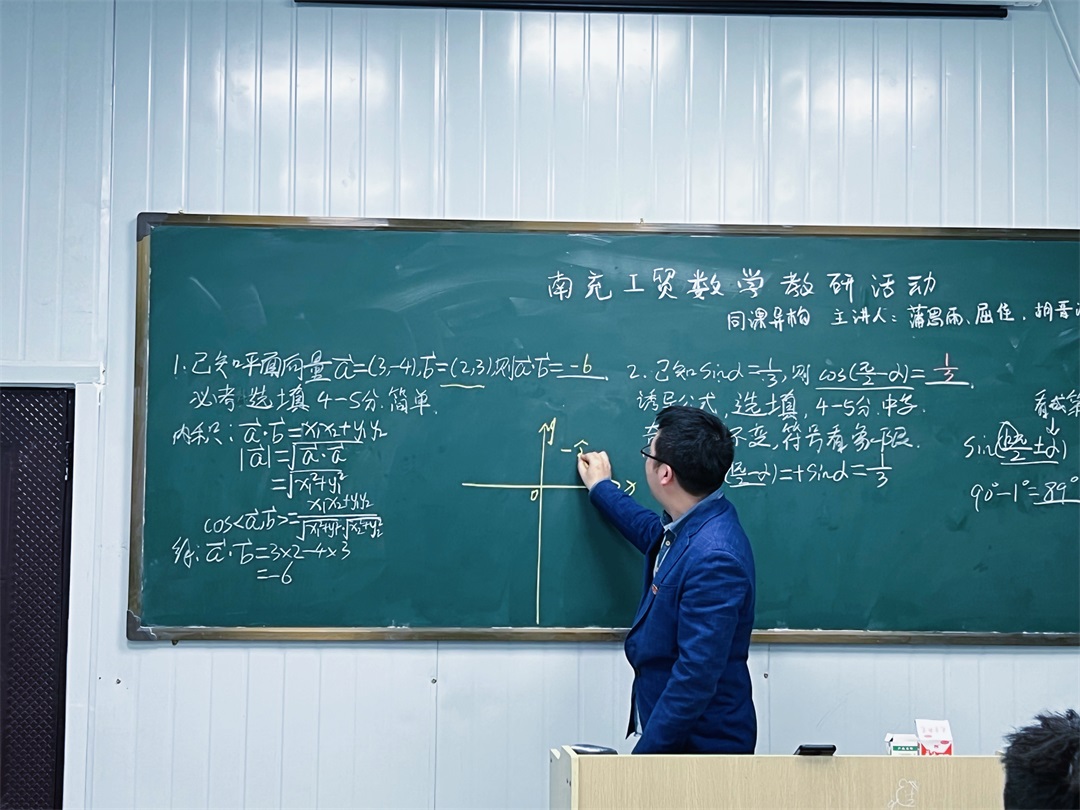 南充工贸数学教研活动
同课异构 主讲人：蒲思雨、屈佳，胡晋
1.已知平面向量a⃗=(3,-4),b⃗=(2,3),则a⃗·b⃗=-6.
必考 选填 4-5分.简单.
内积：a⃗·b⃗=x₁x₂+y₁y₂
|a⃗|=√(a⃗·a⃗)
=√(x₁²+y₁²)
cos<a⃗,b⃗>=(x₁x₂+y₁y₂)/(√(x₁²+y₁²)·√(x₂²+y₂²))
解：a⃗·b⃗=3×2-4×3
=-6
y
x
0
2.已知sinα=1/3,则cos(π/2-α)=1/3.
诱导公式,选填,4-5分.中等.
不变,符号看象限.
(π/2-α)=+sinα=1/3
sin(kπ/2±α)
90°-1°=89°